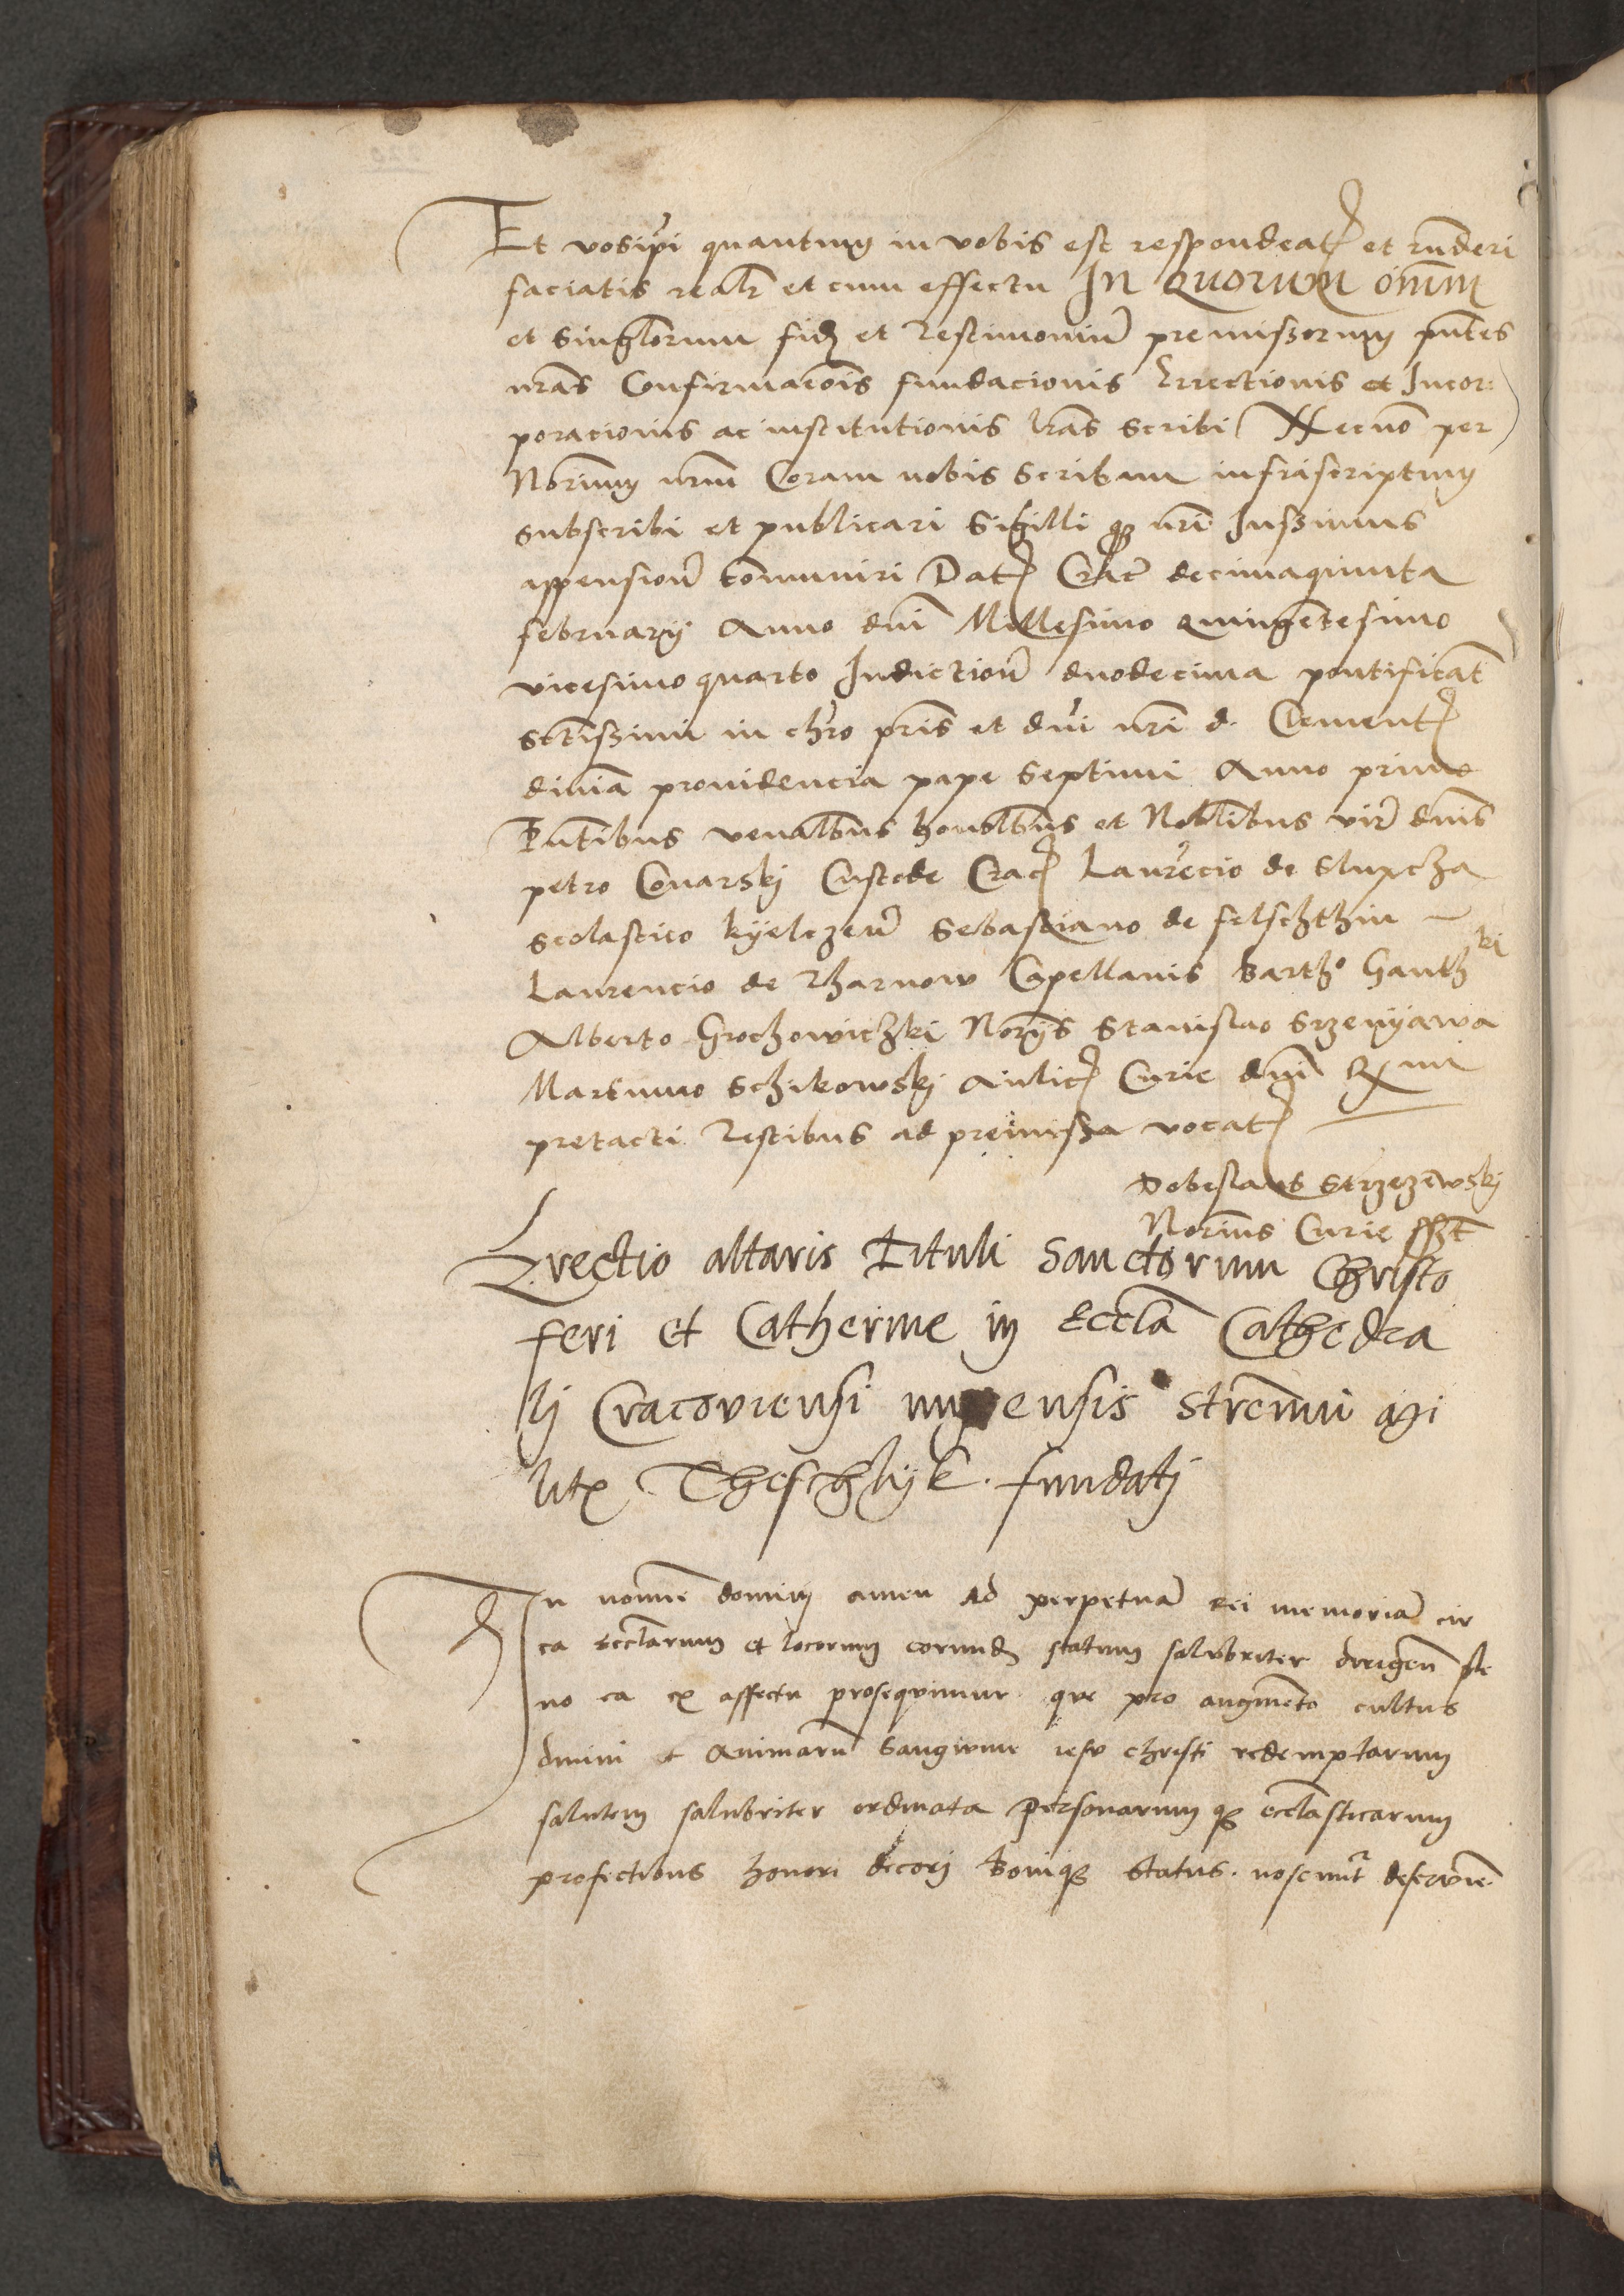 Et vos ipsi quantum in vobis est respondeatis et rñderi
faciatis realr̃ et cum effectu In Quorum om̃m
et singlorum fidẽ et testimoniũ premissorum pñtes
nr̃as Confirmacõis fundacionis Errectionis et Incor
poracionis ac institutionis lr̃as scribi Necnõ per
Norium nrm̃ Coram nobis scribam infrascriptum
subscribi et publicari Sigilli qz nri Iussimus
appensioñ communiri Dat Crac decimaquinta
februarij Anno dñi Millesimo quingẽtesimo
vicesimo quarto Indictioñ duodecima pontificat
sctissimi in chr̃o pr̃is et dñi nr̃i d. Clement
diuĩa prouidencia pape Septimi Anno primo
Pñtibus venalbus honolbus et Nobilibus vir dñis
petro Conarski Custode Crac Laurẽcio de Slupcza
scolastico kyelczeñ Sebastiano de felschthin
Laurencio de Tharnow Capellanis Barthº Ganthki
Alberto Grochowiczki Norijs Stanislao Srzenyawa
Martinno Schikowski Aulic Curie dñi Rmi
pretacti testibus ad premissa vocat
Dobeslaus Strzezewski
Norius Curie sszt
Erectio altaris tituli Sanctorum Christo
feri et Catherine in Eccla Cathedra
li Cracouiensi ensis strẽnui
Theschnyk. fundati
In nomine domini amen Ad perpetuã rei memoriã cir
ca ecclarum et locorum eorundẽ statum salubriter dirigeñ
no ea ex affectu prosequimur que pro augmẽto cultus
diuini et Animarũ Sanguine iesu christi redemptarum
salutem salubriter ordinata Personarum qz ecclasticarum
profectibus honori decori bonique status. noscunt̃ deseruire